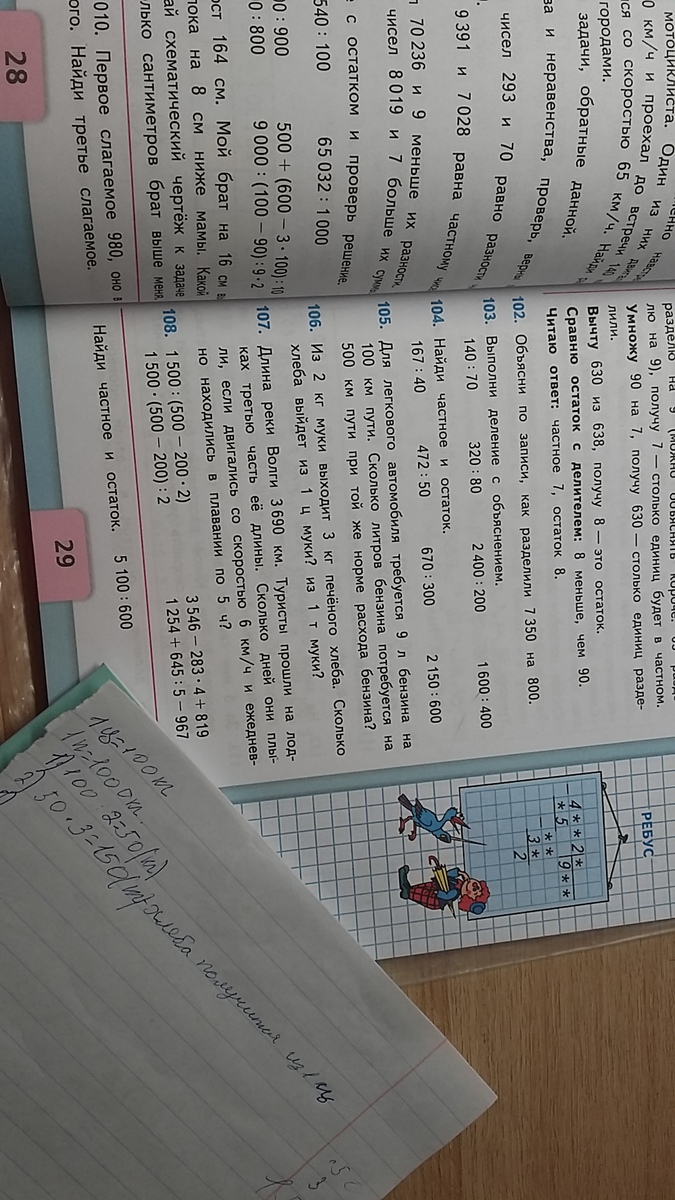 мотоциклиста. Один из них
0 км/ч и проехал до встречи
со скоростью 65 км/ч. Найди
городами.
задачи, обратные данной.
чисел 293 и 70 равно разности
ва и неравенства, проверь,
9 391 и 7 028 равна частному
70 236 и 9 меньше их разности.
чисел 8 019 и 7 больше их
е с остатком и проверь решение.
540 : 100 65 032 : 1 000
00 : 900 500 + (600 − 3 · 100) : 10
00 : 800 9 000 : (100 − 90) : 9 · 2
ост 164 см. Мой брат на 16 см
на 8 см ниже мамы. Какой
ай схематический чертёж к задаче
олько сантиметров брат выше меня.
010. Первое слагаемое 980, оно
ого. Найди третье слагаемое.
28
разделю на 9
лю на 9), получу 7 — столько единиц будет в частном.
Умножу 90 на 7, получу 630 — столько единиц разде-
лили.
Вычту 630 из 638, получу 8 — это остаток.
Сравню остаток с делителем: 8 меньше, чем 90.
Читаю ответ: частное 7, остаток 8.
102. Объясни по записи, как разделили 7 350 на 800.
103. Выполни деление с объяснением.
140 : 70 320 : 80 2 400 : 200 1 600 : 400
104. Найди частное и остаток.
167 : 40 472 : 50 670 : 300 2 150 : 600
105. Для легкового автомобиля требуется 9 л бензина на
100 км пути. Сколько литров бензина потребуется на
500 км пути при той же норме расхода бензина?
106. Из 2 кг муки выходит 3 кг печёного хлеба. Сколько
хлеба выйдет из 1 ц муки? из 1 т муки?
107. Длина реки Волги 3 690 км. Туристы прошли на лод-
ках третью часть её длины. Сколько дней они плы-
ли, если двигались со скоростью 6 км/ч и ежеднев-
но находились в плавании по 5 ч?
108. 1 500 : (500 − 200 · 2) 3 546 − 283 · 4 + 819
1 500 · (500 − 200) : 2 1 254 + 645 : 5 − 967
Найди частное и остаток. 5 100 : 600
29
РЕБУС
− 4 * * 2 * | 9 * *
* 5
− * *
3 *
2
1ц=100т
1т=1000т.
1) 100 : 2=50(т)
2) 50 · 3=150(т)-хлеба получится из 1 ц